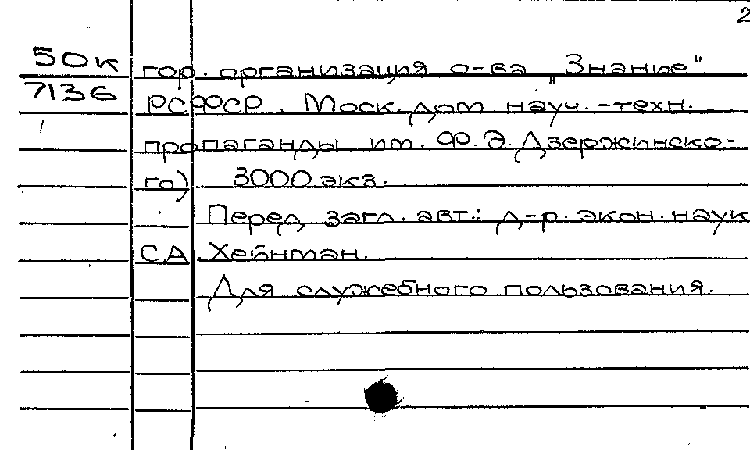 2
50к гор. организация о-ва „Знание"
7136 РСФСР. Моск. дом науч.-техн.
пропаганды им. Ф. Э. Дзержинско-
го) 3000 экз.
Перед загл. авт.: д-р. экон. наук
С.А. Хейнман.
Для служебного пользования.